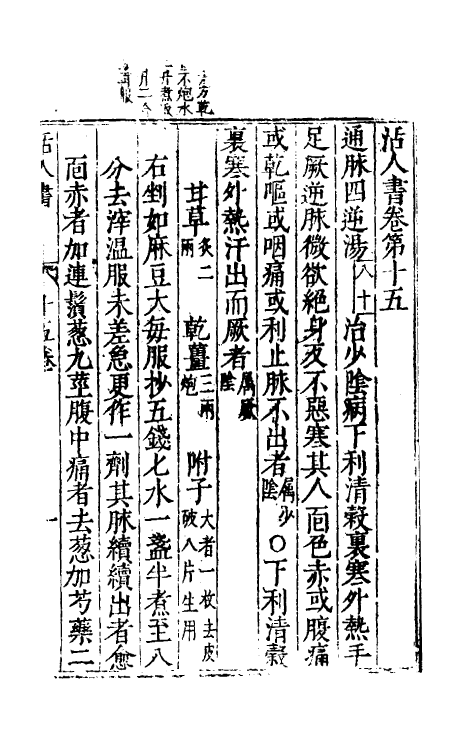 活人書卷第十五
通脉四逆湯八十一治少陰病下利清穀裏寒外熱手
足厥逆脉微欲絕身反不惡寒其人面色赤或腹痛
或乾嘔或咽痛或利止脉不出者屬少陰○下利清穀
裏寒外熱汗出而厥者屬厥陰
甘草炙二兩 乾薑三兩炮 附子大者一枚去皮破八片生用
右剉如麻豆大每服抄五錢匕水一盞半煮至八
分去滓溫服未差急更作一劑其脉續續出者愈
面赤者加連鬚葱九莖腹中痛者去葱加芍藥二
活人書 十五卷 一